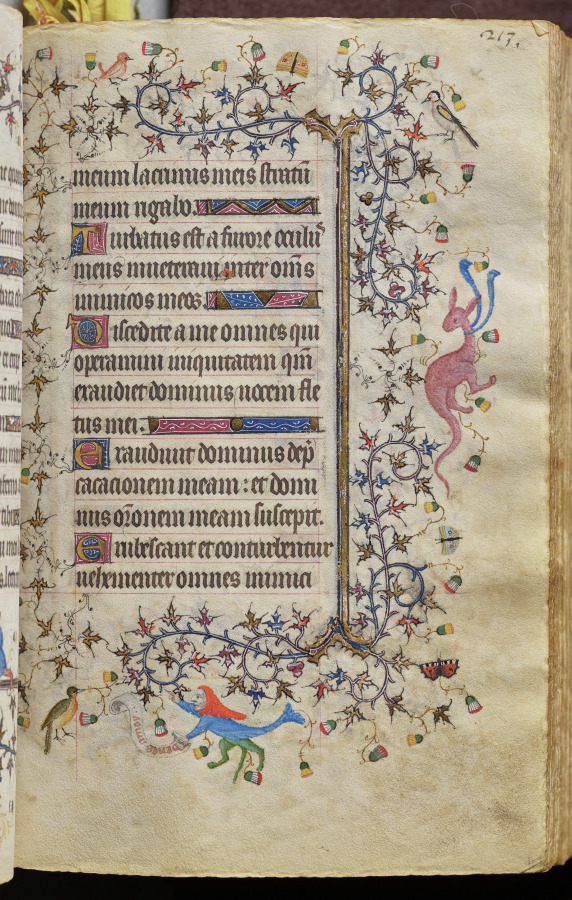 213.
meum lacrimis meis stratū
meum rigabo.
Turbatus est a furore oculꝰ
meus inueteraui inter oīns
inimicos meos.
Discedite a me omnes qui
operamini iniquitatem qm̄
exaudiet dominus uocem fle
tus mei.
Exaudiuit dominus dep̄
cacacionem meam: et domi
nus orōnem meam suscepit.
Erubescant et conturbentur
uehementer omnes inimici